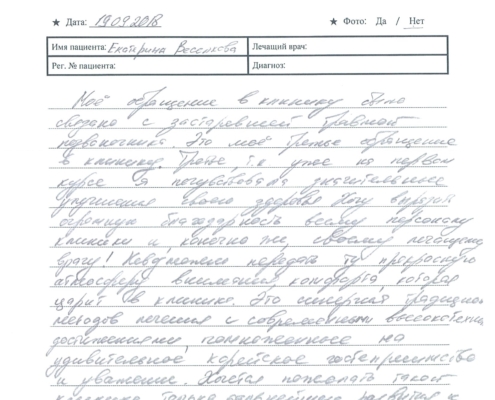 ★ Дата: 19.09.2018 ★ Фото: Да / Нет
Имя пациента: Екатерина Лечащий врач:
Рег. № пациента: Диагноз:
Моё обращение в клинику было
связано с застаревшей травмой
позвоночника. Это моё третье обращение
в клинику. Третье, т.к. уже на первом
курсе я почувствовала значительное
улучшение своего здоровья. Хочу выразить
огромную благодарность всему персоналу
клиники и, конечно же, своему лечащему
врачу! Невозможно передать ту прекрасную
атмосферу внимания, комфорта, которая
царит в клинике. Это синергия традицион
методов лечения с современными высокотехн
достижениями, помноженное на
удивительное корейское гостеприимство
и уважение. Хочется пожелать такой
клинике только дальнейшего